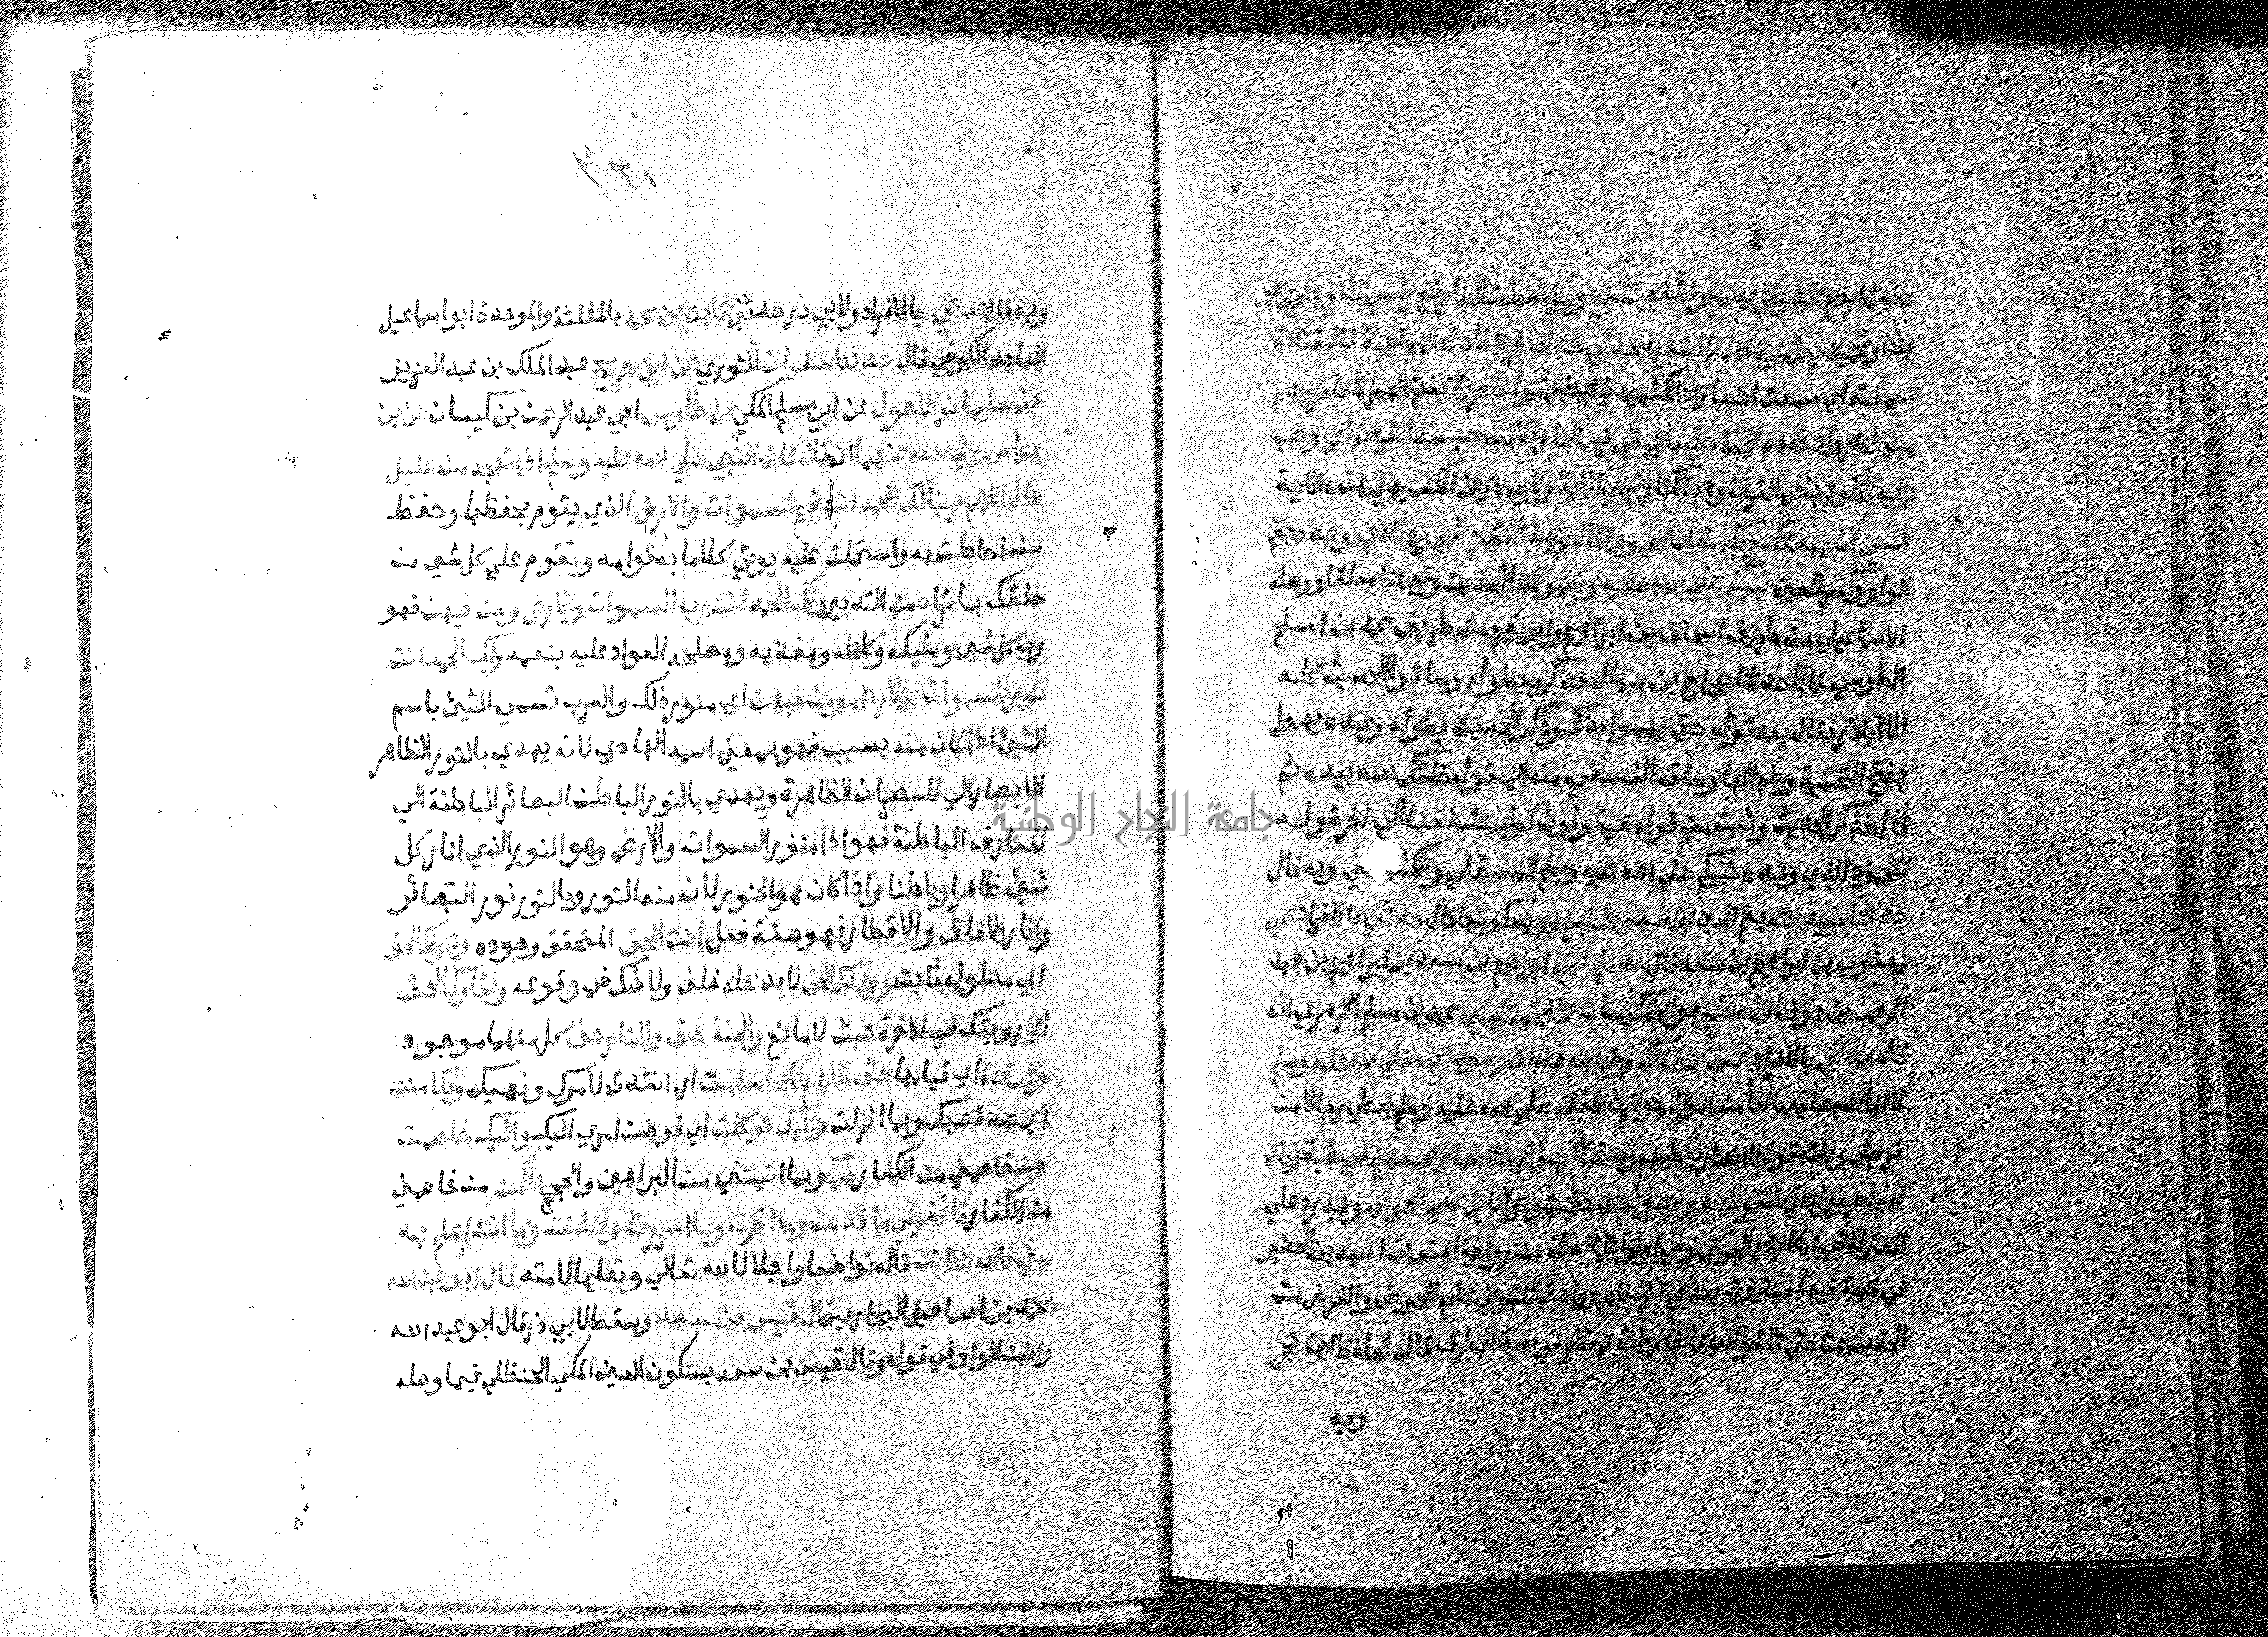 يقول ارفع محمد وقل يسمع واشفع تشفع وسل تعطه قال فارفع راسي فاثني على ربي
بثنا وتحميد يعلمنيه قال ثم اشفع فيحد لي حدا فاخرج فادخلهم الجنة قال قتادة
سمعته اي سمعت انسا زاد الكشميهني ايضا يقول فاخرج بفتح الهمزة فاخرجهم
من النار وأدخلهم الجنة حتى ما يبقى في النار الا من حبسه القران اي وجب
عليه الخلود بنص القران وهم الكفار ثم تلى الاية ولابي ذر عن الكشميهني هذه الاية
عسى ان يبعثك ربك مقاما محمودا قال وهذا المقام المحمود الذي وعده بضم
الواو وكسر العين نبيكم صلى الله عليه وسلم وهذا الحديث وقع هنا معلقا ووصله
الاسماعيلي من طريق اسحاق بن ابراهيم وابو نعيم من طريق محمد بن اسلم
الطوسي قالا حدثنا حجاج بن منهال فذكره بطوله وساقوا الحديث كله
الا اباذر فقال بعد قوله حتى يهموا بذلك وذكر الحديث بطوله وعنده يهموا
بفتح التحتية وضم الها وساق النسفي منه الى قوله خلقك الله بيده ثم
قال فذكر الحديث وثبت من قوله فيقولون لو استشفعنا الى اخر قوله
المحمود الذي وعده نبيكم صلى الله عليه وسلم للمستملي والكشميهني وبه قال
حدثنا عبيد الله بضم العين ابن سعد بن ابراهيم بسكونها قال حدثني بالافراد عمي
يعقوب بن ابراهيم بن سعد قال حدثني ابي ابراهيم بن سعد بن ابراهيم بن عبد
الرحمن بن عوف عن صالح هو ابن كيسان عن ابن شهاب محمد بن مسلم الزهري انه
قال حدثني بالافراد انس بن مالك رضي الله عنه ان رسول الله صلى الله عليه وسلم
لما افأ الله عليه ما افأ من اموال هوازن طفق صلى الله عليه وسلم يعطي رجالا من
قريش وبلغه قول الانصار يعطيهم ويدعنا ارسل الى الانصار فجمعهم في قبة وقال
لهم اصبروا حتى تلقوا الله ورسوله اي حتى تموتوا فاني على الحوض وفيه رد على
المعتزلة في انكارهم الحوض وفي اوايل الفتن من رواية انس عن اسيد بن الحضير
في قصة فيها فسترون بعدي اثرة فاصبروا حتى تلقوني على الحوض والغرض من
الحديث هنا حتى تلقوا الله فانها زيادة لم تقع في بقية الطرق قاله الحافظ ابن حجر
وبه
٣٦٠
وبه قال حدثني بالافراد ولابي ذر حدثنا ثابت بن محمد بالمثلثة والموحدة ابو اسماعيل
العابد الكوفي قال حدثنا سفيان الثوري عن ابن جريج عبد الملك بن عبد العزيز
عن سليمان الاحول عن ابي مسلم المكي عن طاوس ابي عبد الرحمن بن كيسان عن بن
عباس رضي الله عنهما انه قال كان النبي صلى الله عليه وسلم اذا تهجد من الليل
قال اللهم ربنا لك الحمد انت قيم السموات والارض الذي يقوم بحفظها وحفظ
من احاطت به واستملت عليه يوتي كلا ما به قوامه وتقوم على كل شي من
خلقك بما تراه من التدبير ولك الحمد انت رب السموات والارض ومن فيهن فهو
رب كل شي ومليكه وكافله ومغذيه ومصلحه العواد عليه بنعمه ولك الحمد انت
نور السموات والارض ومن فيهن اي منور ذلك والعرب تسمي الشيئ باسم
الشيئ اذا كان منه بسبب فهو بمعنى اسمه الهادي لانه يهدي بالنور الظاهر
الابصار الى المبصرات الظاهرة ويهدي بالنور الباطن البصائر الباطنة الى
المعارف الباطنة فهو اذا منور السموات والارض وهو النور الذي انار كل
شيئ ظاهرا وباطنا واذا كان هو النور لان منه النور وبالنور نور البصائر
وانار الافاق والاقطار فهو صفة فعل انت الحق المتحقق وجوده وقولك الحق
اي مدلوله ثابت ووعدك الحق لا يدخله خلف ولا شك في وقوعه ولقاوك الحق
اي رويتك في الاخرة حيث لا مانع والجنة حق والنار حق كل منهما موجود
والساعة اي قيامها حق اللهم لك اسلمت اي انقدت لامرك ونهيك وبك امنت
اي صدقت بك وبما انزلت وعليك توكلت اي فوضت امري اليك واليك خاصمت
من خاصمني من الكفار وبك وبما اتيتني من البراهين والحجج حاكمت من خاصمني
من الكفار فاغفر لي ما قدمت وما اخرت وما اسررت واعلنت وما انت اعلم به
مني لا اله الا انت قاله تواضعا واجلالا لله تعالى وتعليما لامته قال ابو عبد الله
محمد بن اسماعيل البخاري قال قيس بن سعد وسقط لابي ذر قال ابو عبد الله
واثبت الواو في قوله وقال قيس بن سعد بسكون العين المكي الحنظلي فيما وصله
جامعة النجاح الوطنية